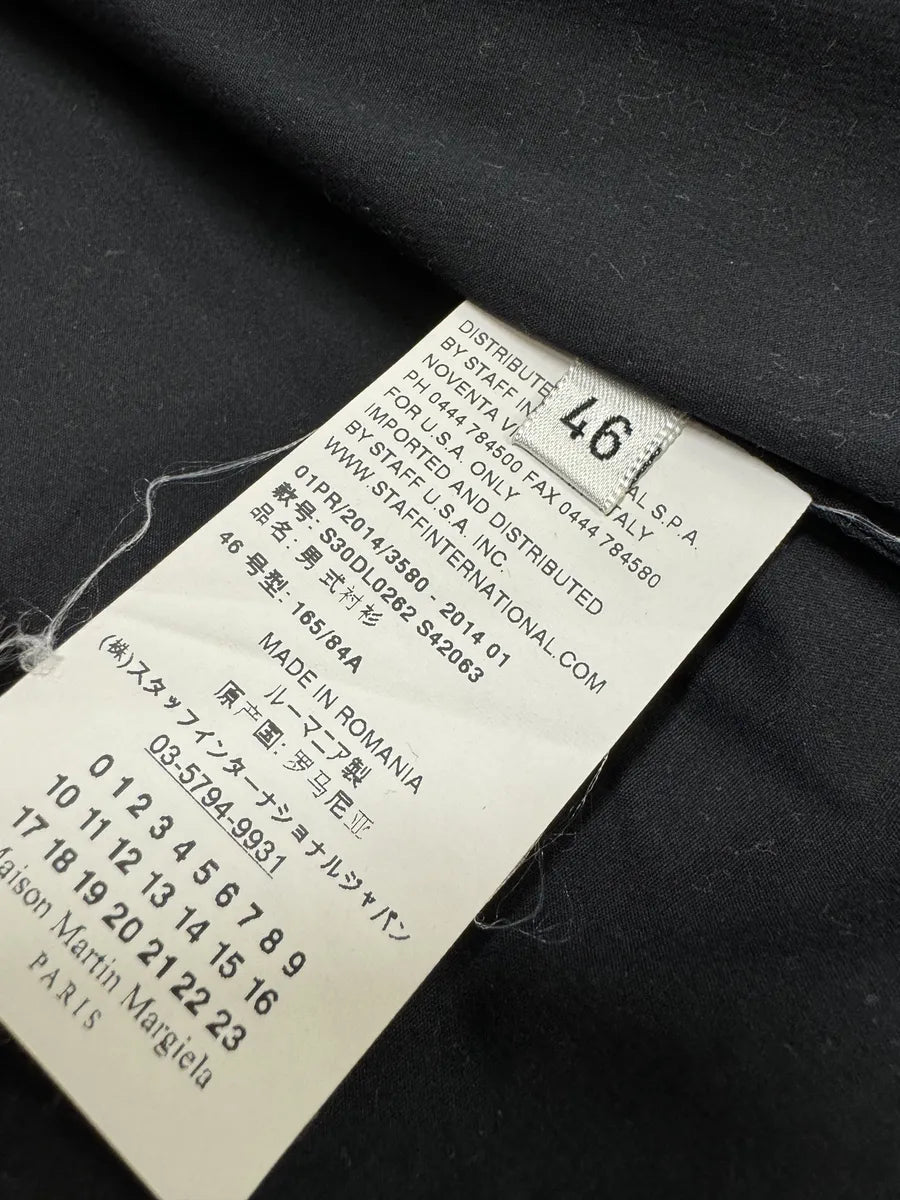 46
DISTRIBUTE
BY STAFF IN AL S.P.A.
NOVENTA VI ITALY
PH 0444 784500 FAX 0444 784580
FOR U.S.A. ONLY
IMPORTED AND DISTRIBUTED
BY STAFF U.S.A. INC.
WWW.STAFFINTERNATIONAL.COM
01PR/2014/3580 - 2014 01
款号: S30DL0262 S42063
品名: 男式衬衫
46 号型: 165/84A
MADE IN ROMANIA
ルーマニア製
原产国: 罗马尼亚
(株)スタッフインターナショナルジャパン
03-5794-9931
0 1 2 3 4 5 6 7 8 9
10 11 12 13 14 15 16
17 18 19 20 21 22 23
Maison Martin Margiela
PARIS